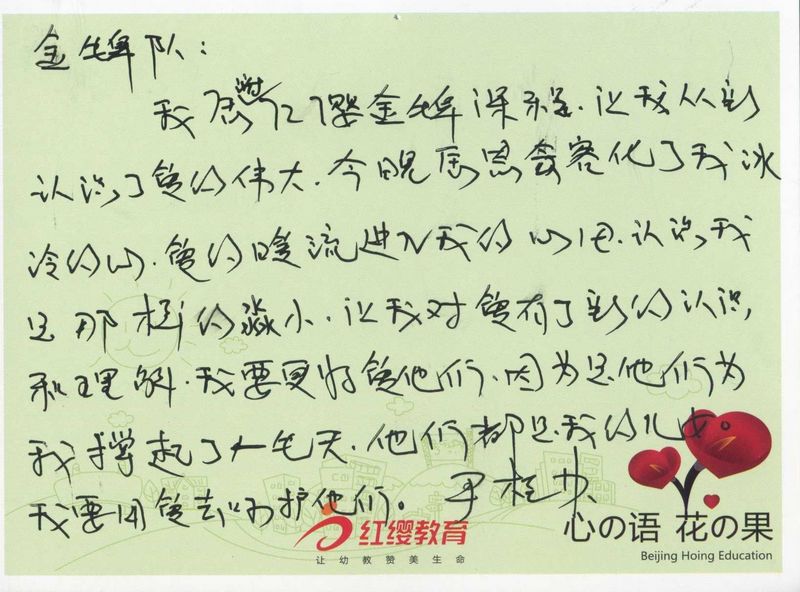 金牌队：
我感谢红缨金牌课程，让我从新
认识了爱的伟大。今晚感恩会容化了我冰
冷的心。爱的暖流进入我的心田。认识我
是那样的渺小，让我对爱有了新的认识，
和理解。我要更好爱他们，因为是他们为
我撑起了一片天，他们都是我的儿女。
我要用爱去呵护他们。
红缨教育
让幼教赞美生命
心の语 花の果
Beijing Hoing Education